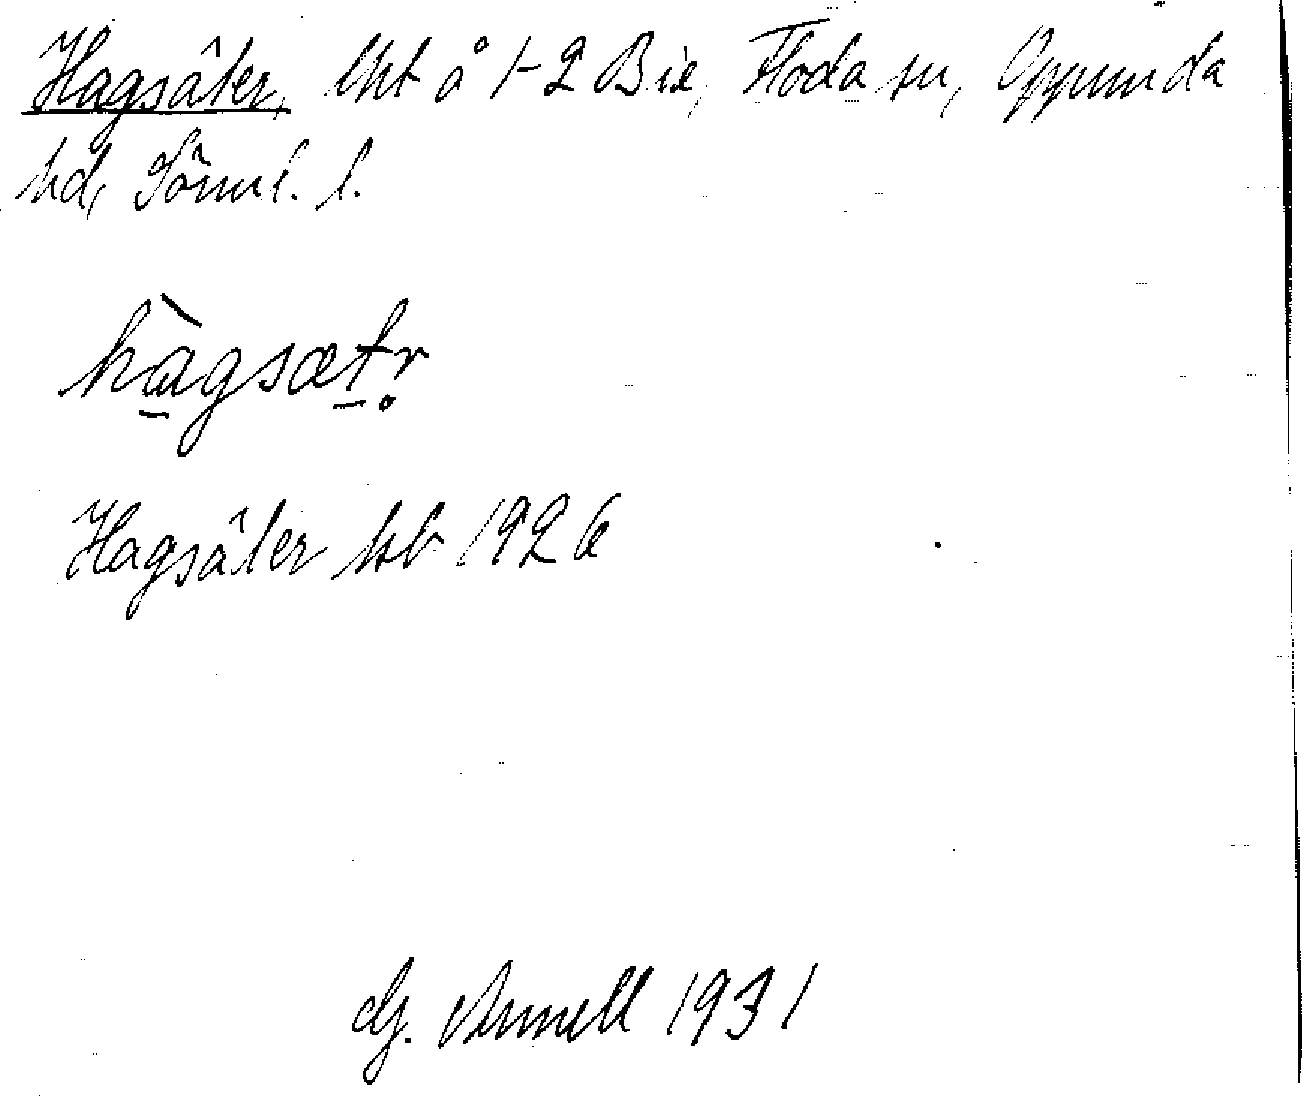 Hagsäter, lht å 1-2 Bie, Floda sn, Oppunda
hd, Sörml. l.
hàgsætr̥
Hagsäter kb 1926
G. Arnell 1931